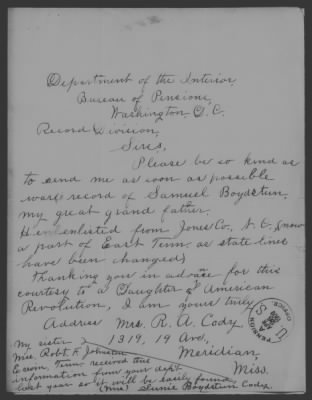 Department of the Interior,
Bureau of Pensions,
Washington, D.C.
Record Division,
Sirs,
Please be so kind as
to send me as soon as possible
ware record of Samuel Boydstun,
my great grand father.
He enlisted from Jones Co., N.C. (now
a part of East Tenn. as state lines
have been changed)
Thanking you in advance for this
courtesy to a Daughter of American
Revolution, I am yours truly
Address Mrs. R. A. Cody
1319, 19 Ave,
Meridian,
Miss.
My sister
Mrs. Robt. F. Johnston
Tenn. received this
information from your dept
last year so it will be easily found,
(Mrs) Boydstun Cody.
U.S. PENSION OFFICE